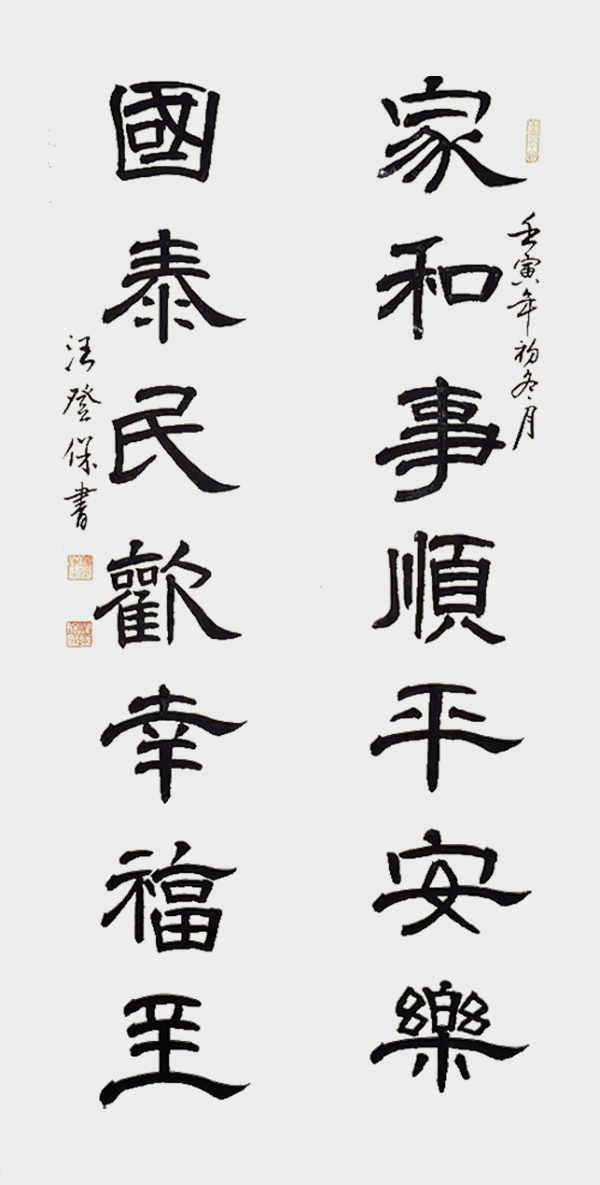 壬寅年初冬月
家和事順平安樂
國泰民歡幸福至
汪登保書